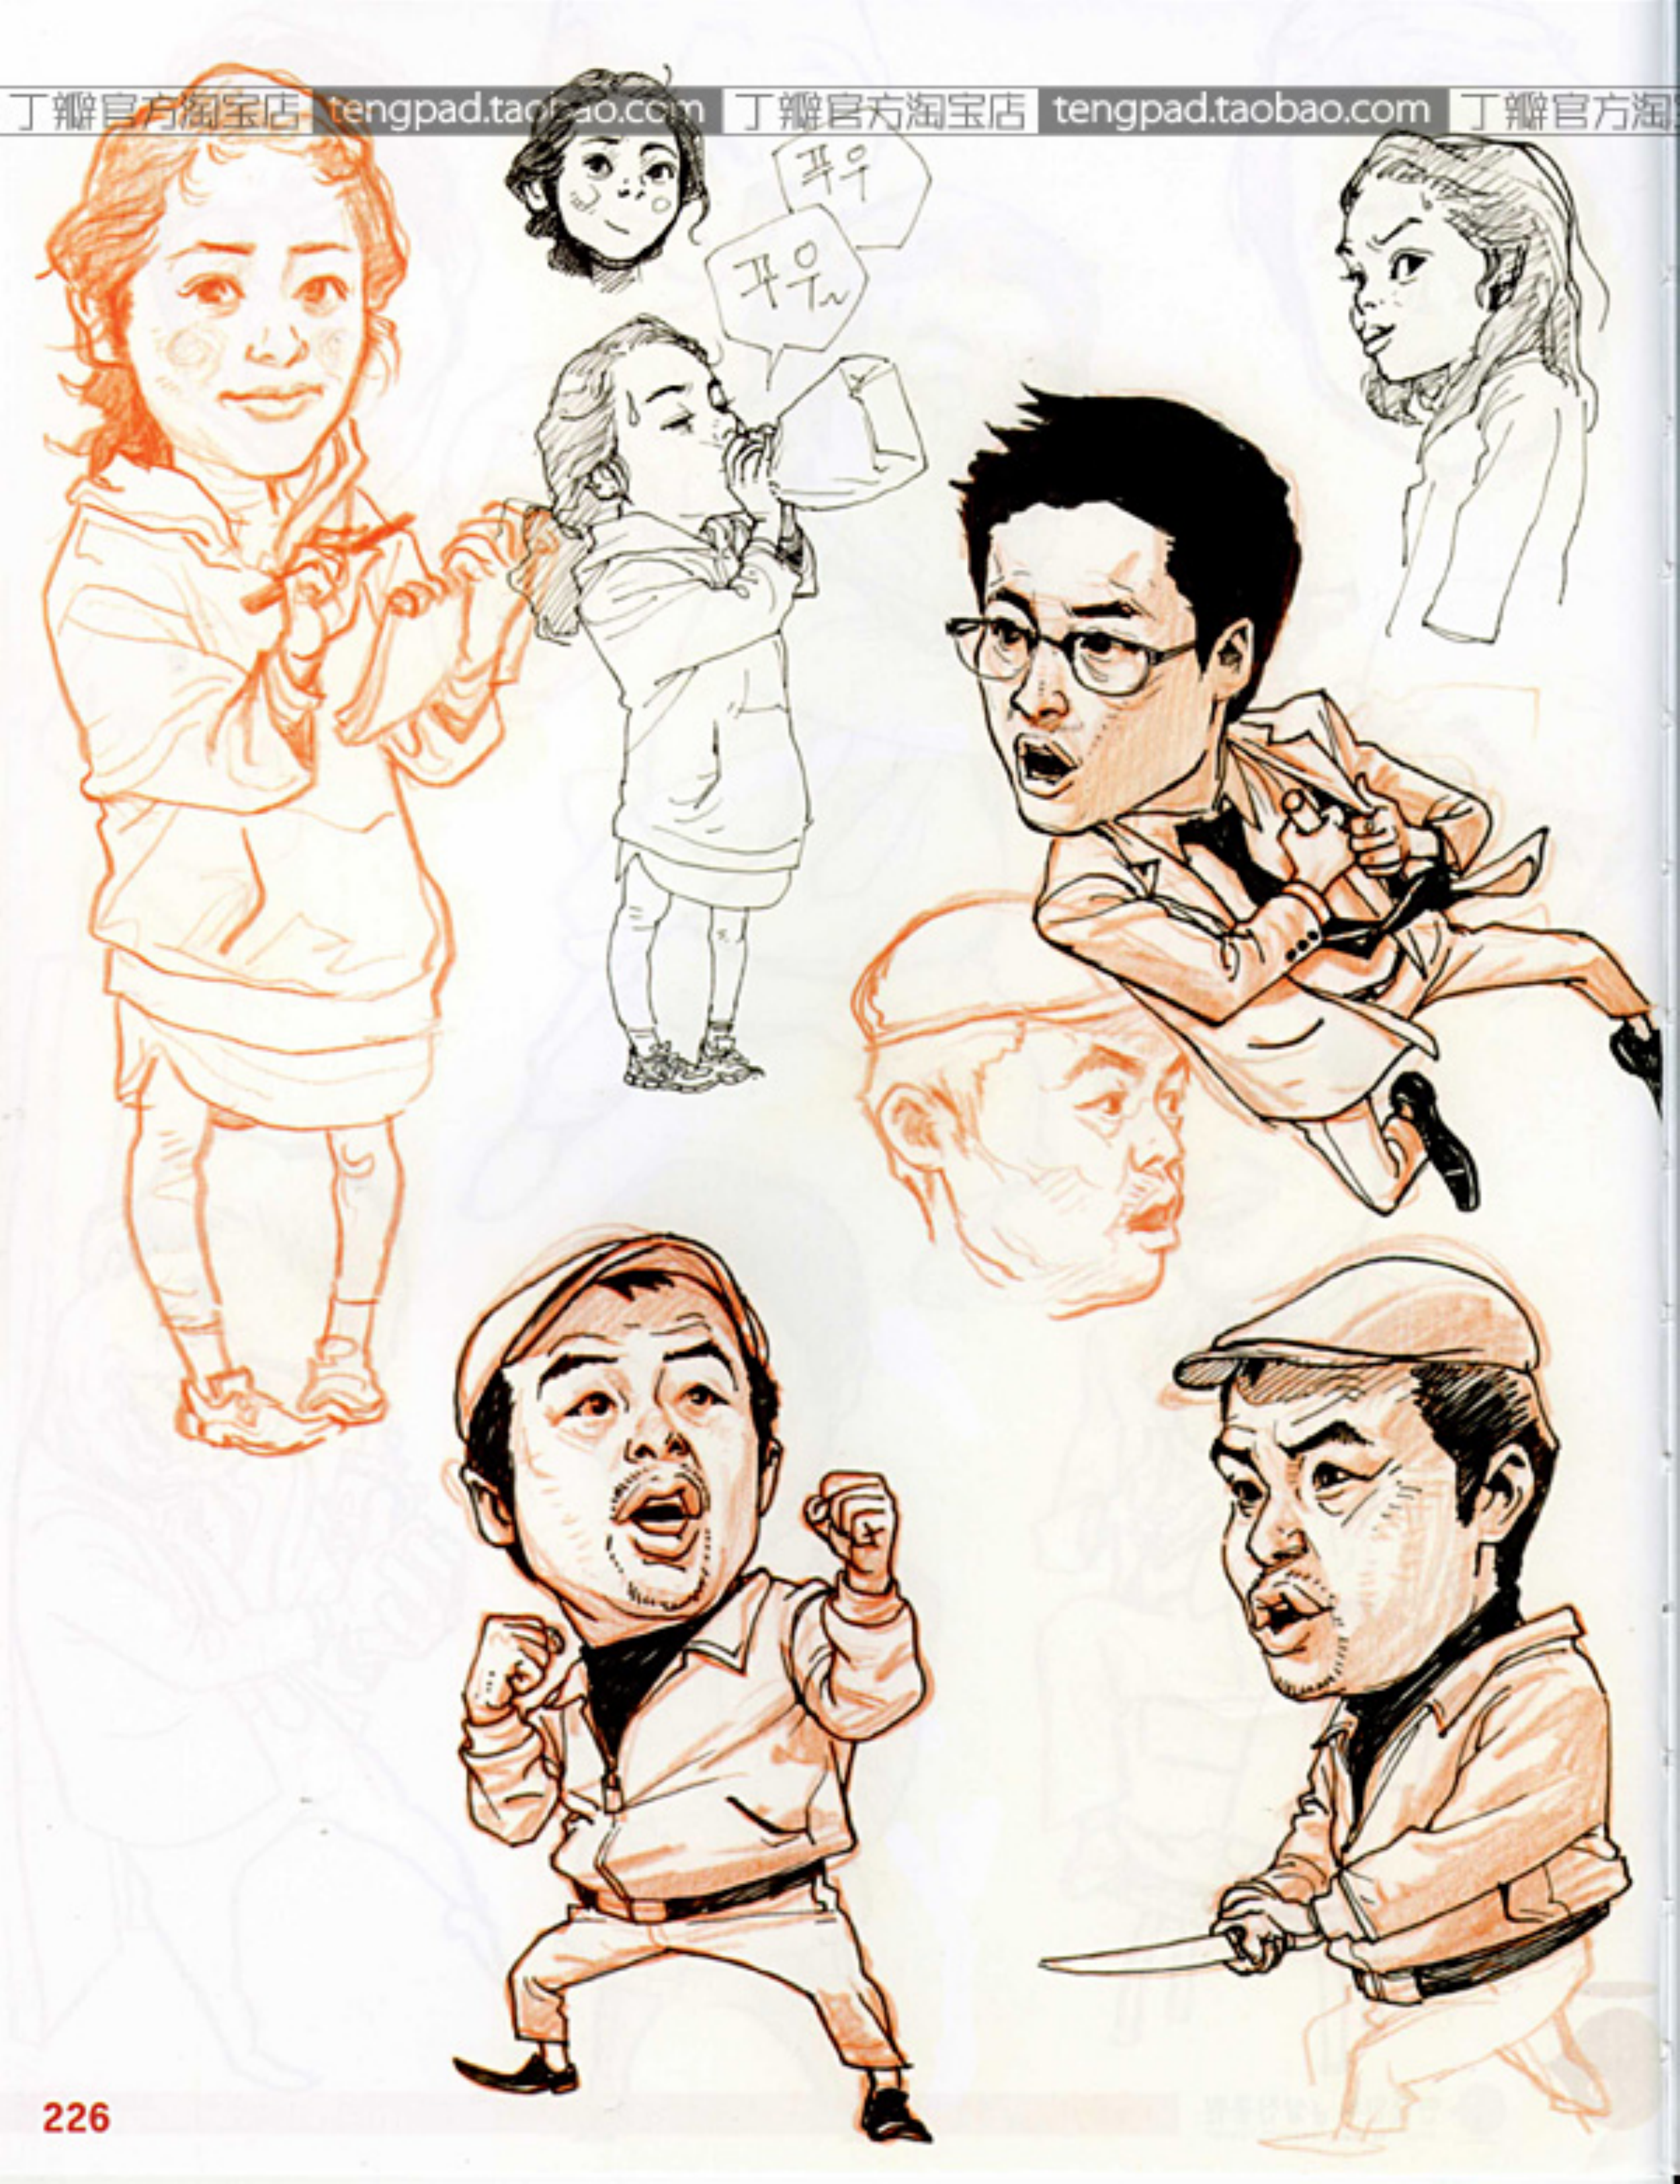 丁瓣官方淘宝店 tengpad.taobao.com 丁瓣官方淘宝店 tengpad.taobao.com 丁瓣官方淘
푸우
푸우~
226